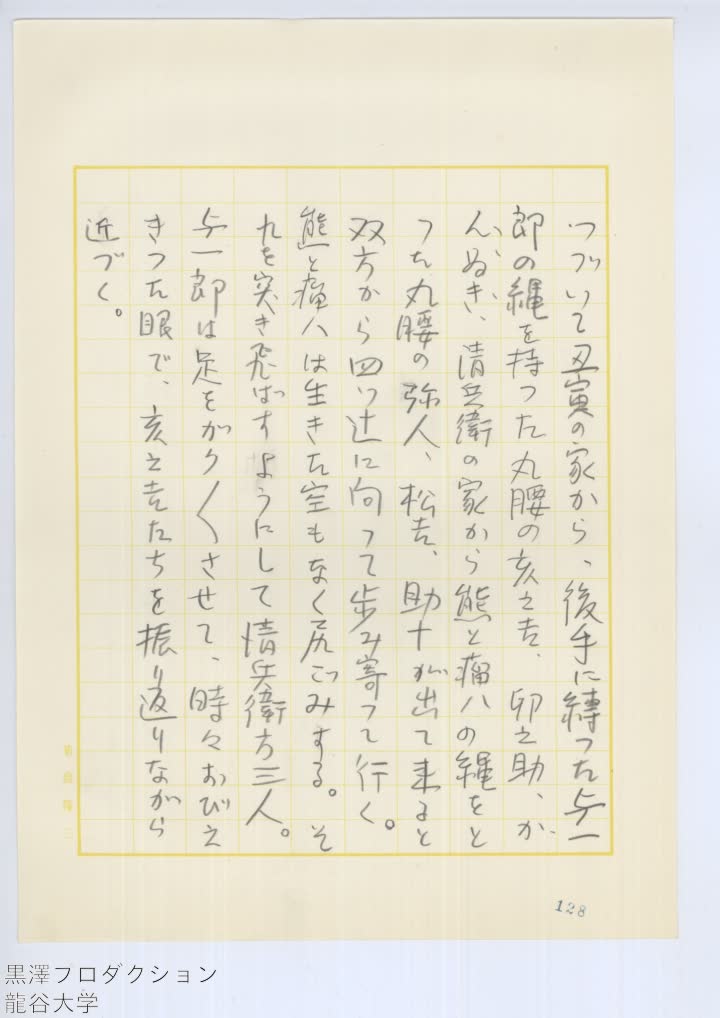 つゞいて丑寅の家から、後手に縛つた与一
郎の縄を持つた丸腰の亥之吉、卯之助、が
ん、ぬき、清兵衛の家から熊と瘤八の縄をと
つた丸腰の弥八、松吉、助十が出て来ると
双方から四ツ辻に向つて歩み寄つて行く。
熊と瘤八は生きた空もなく尻ごみする。そ
れを突き飛ばすようにして清兵衛方三人。
与一郎は足をガク〱させて、時々おびえ
きつた眼で、亥之吉たちを振り返りながら
近づく。
128
黒澤プロダクション
龍谷大学